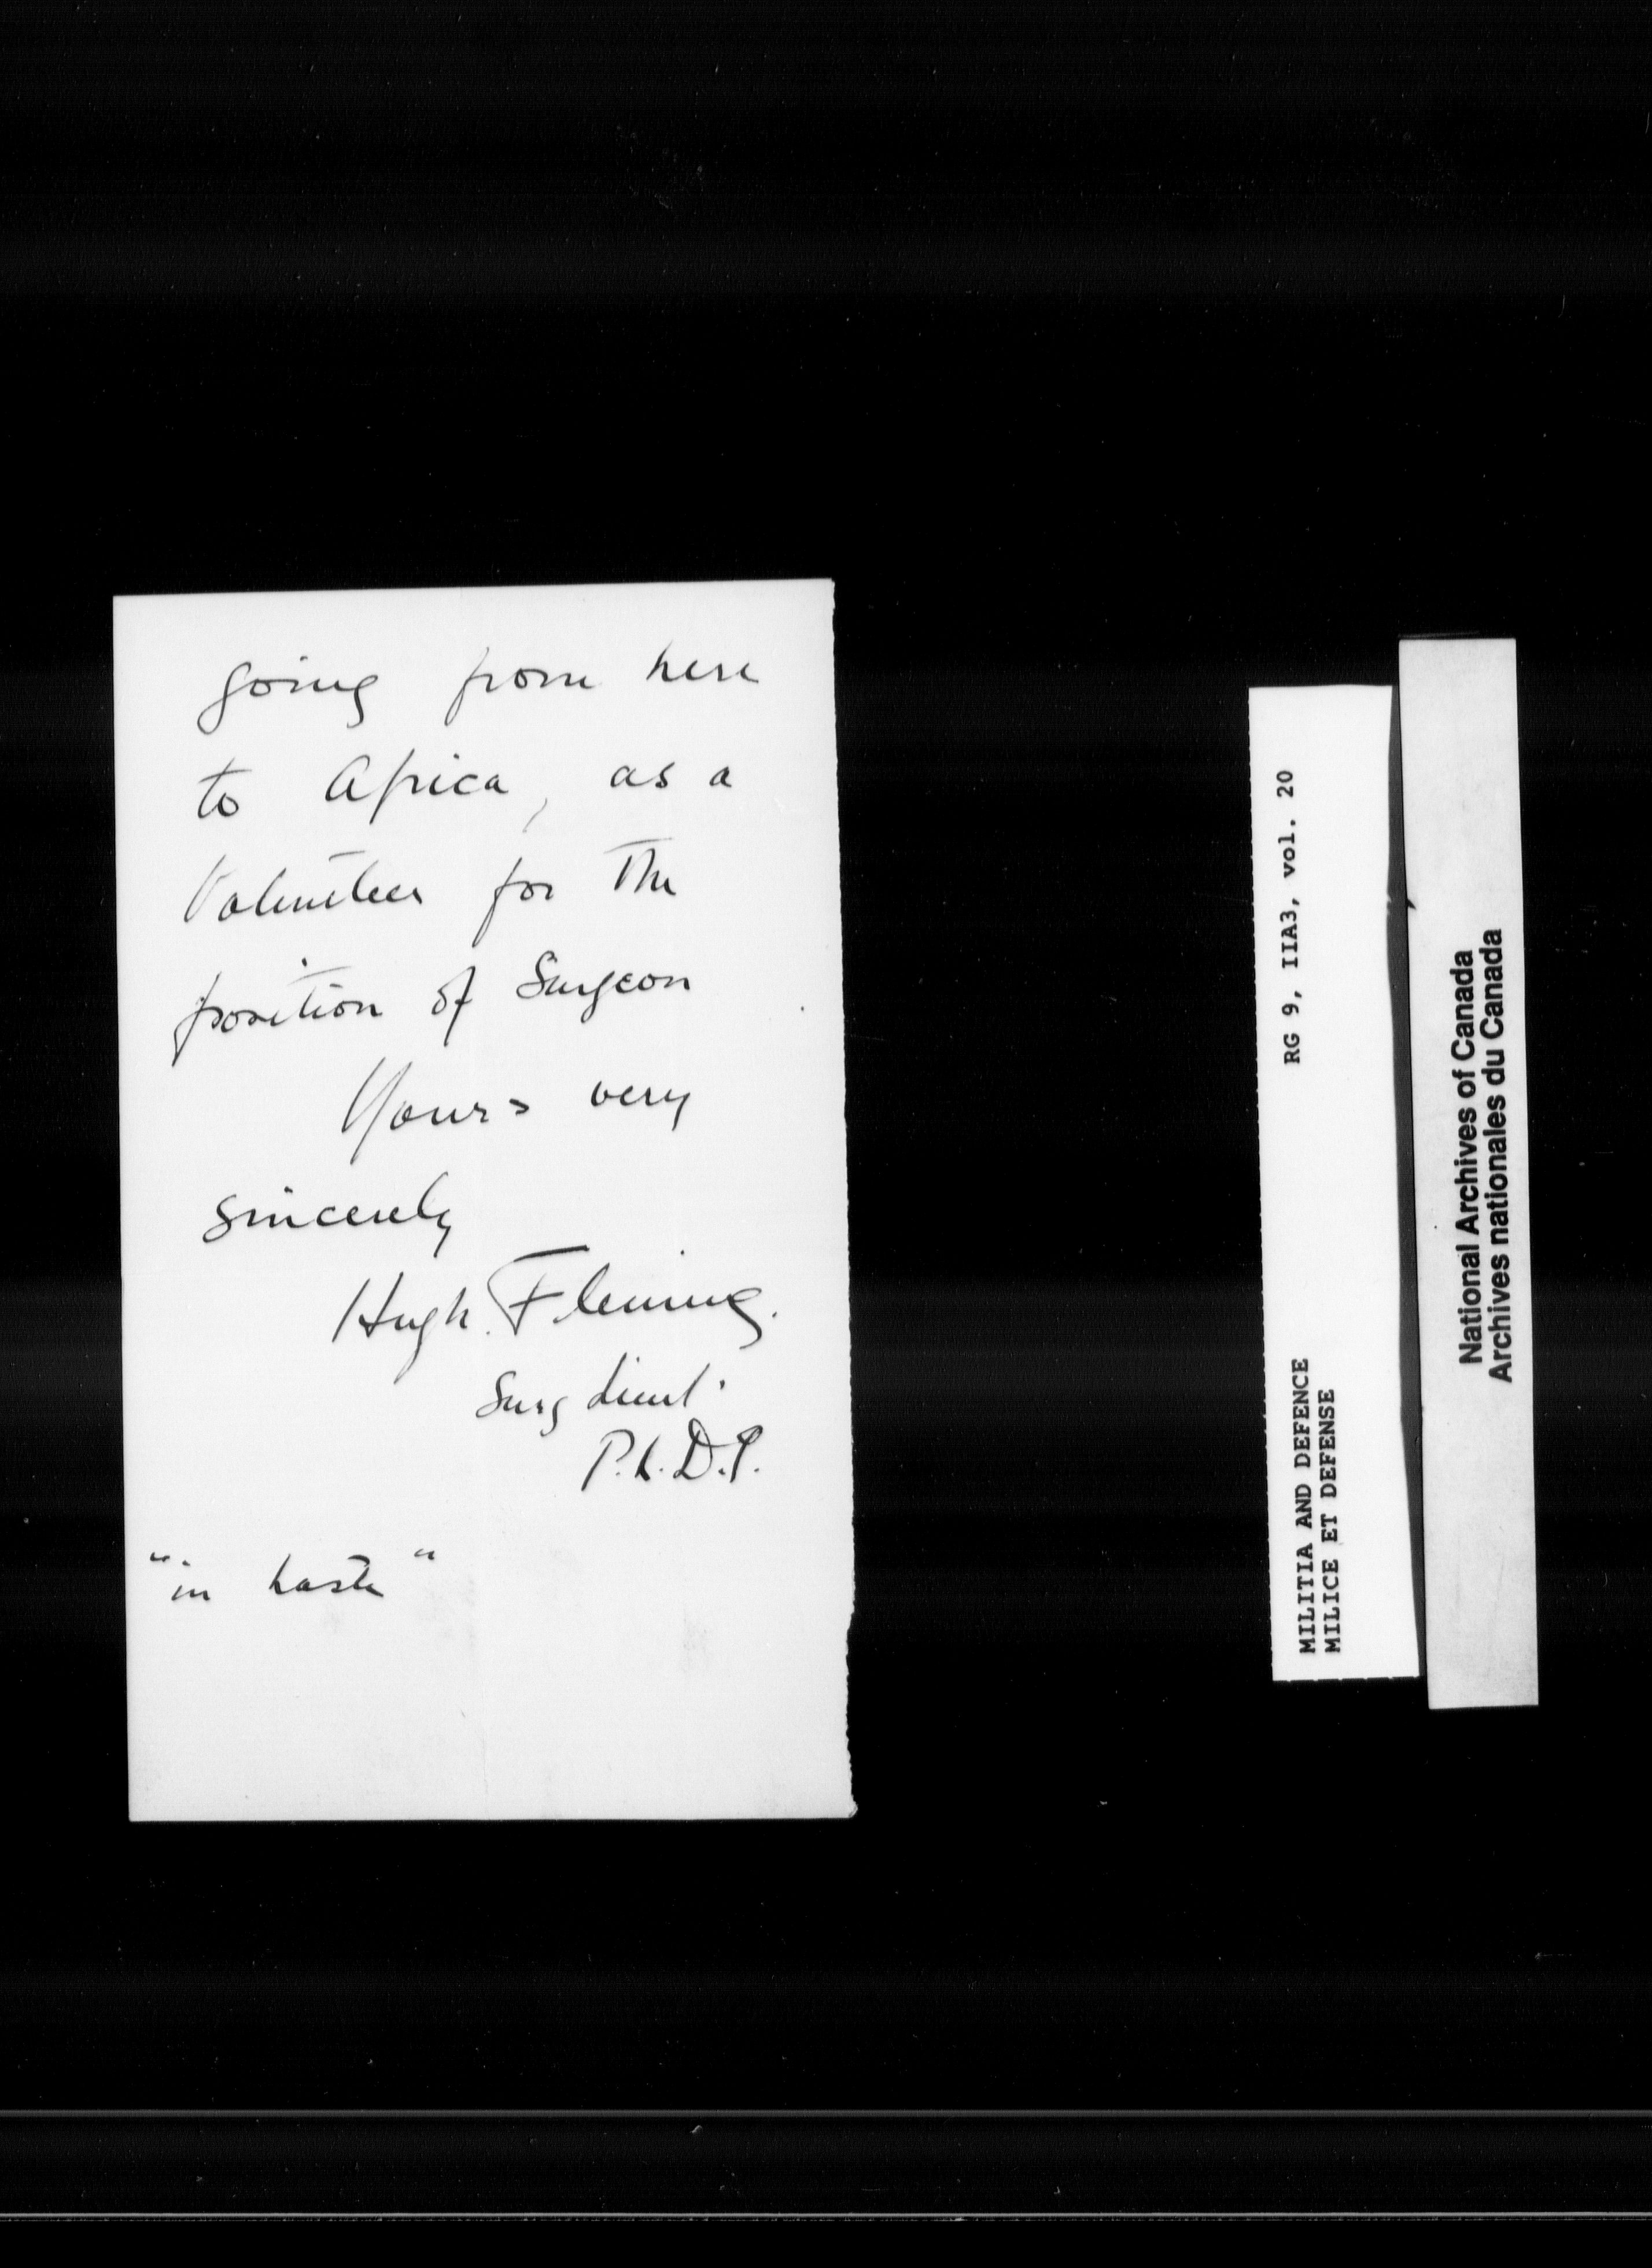 going from here
to Africa, as a
Volunteer for the
position of Surgeon
Yours very
sincerely
Hugh. Fleming.
Surg Lieut.
P.L.D.G.
"in haste"
RG 9, IIA3, vol. 20
MILITIA AND DEFENCE
MILICE ET DEFENSE
National Archives of Canada
Archives nationales du Canada